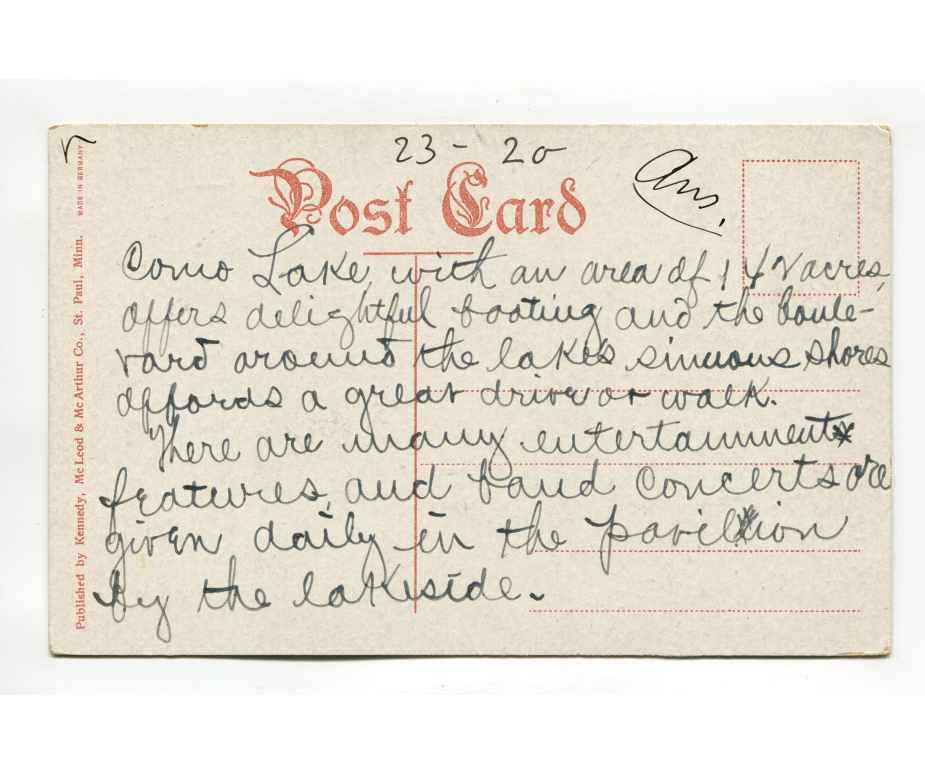 23 - 20
Ans.
Post Card
Como Lake, with an area of acres,
offers delightful boating and the boule-
vard around the lake's sinuous shores
affords a great drive or walk.
There are many entertainment
features, and band concerts are
given daily in the pavilion
by the lakeside.
Published by Kennedy, McLeod & McArthur Co., St. Paul, Minn. MADE IN GERMANY